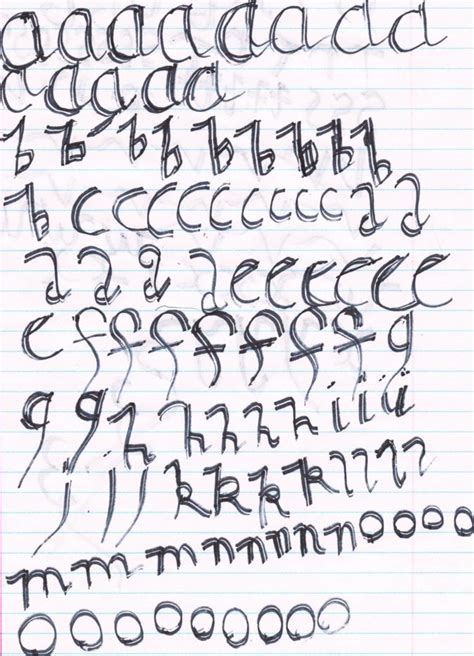 a a a a a a a a a
a a a a a
b b b b b b b b b
b c c c c c c c c c d d
d d d d e e e e e e
e f f f f f f f g
g g h h h h h i i i
j j j k k k k l l l l
m m m n n n n n o o o o
o o o o o o o o o